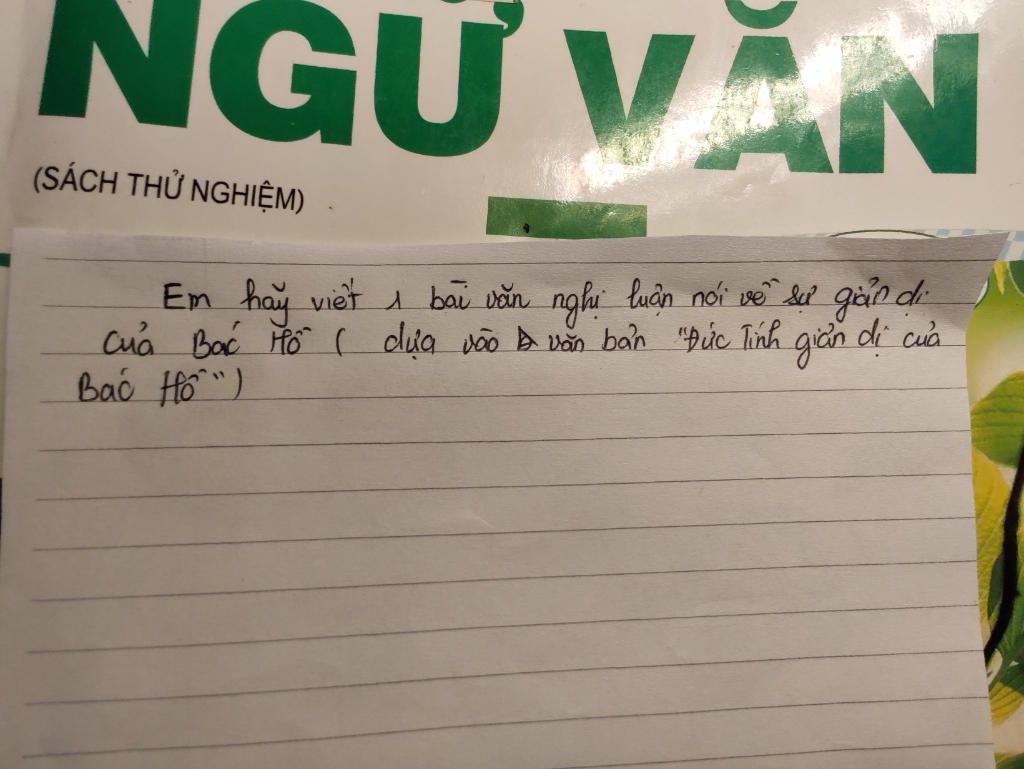 NGỮ VĂN
(SÁCH THỬ NGHIỆM)
Em hãy viết 1 bài văn nghị luận nói về sự giản dị
của Bác Hồ ( dựa vào văn bản "Đức Tính giản dị của
Bác Hồ")